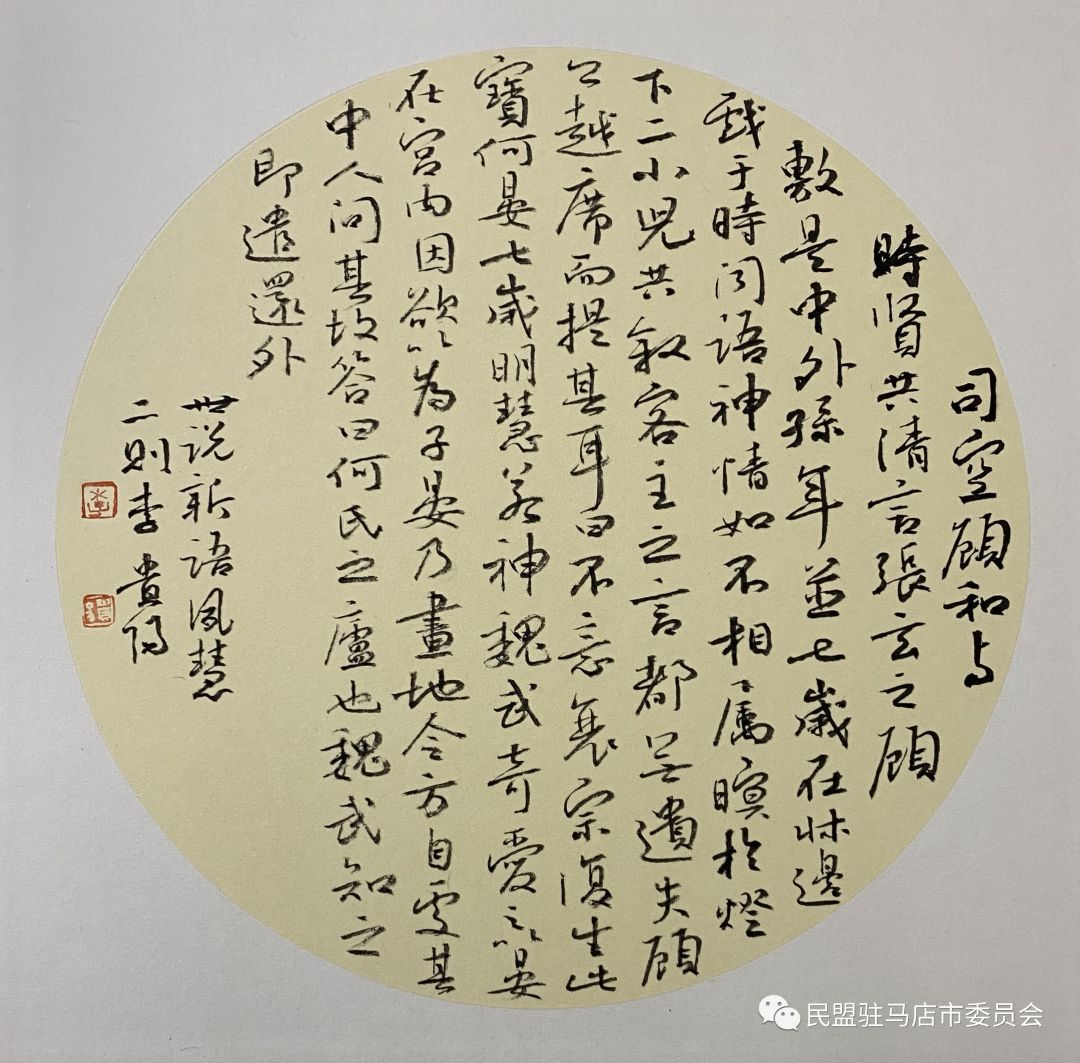 司空顾和与
時賢共清言張玄之顾
敷是中外孫年並七歲在牀邊
戏于時闻語神情如不相属瞑於燈
下二小兒共叙客主之言都无遺失顾
公越席而提其耳曰不意衰宗復生此
寶何晏七歲明慧若神魏武奇愛之以晏
在宮内因欲以為子晏乃畫地令方自处其
中人问其故答曰何氏之廬也魏武知之
即遣還外
世说新语夙慧
二则李貴阳
民盟驻马店市委员会